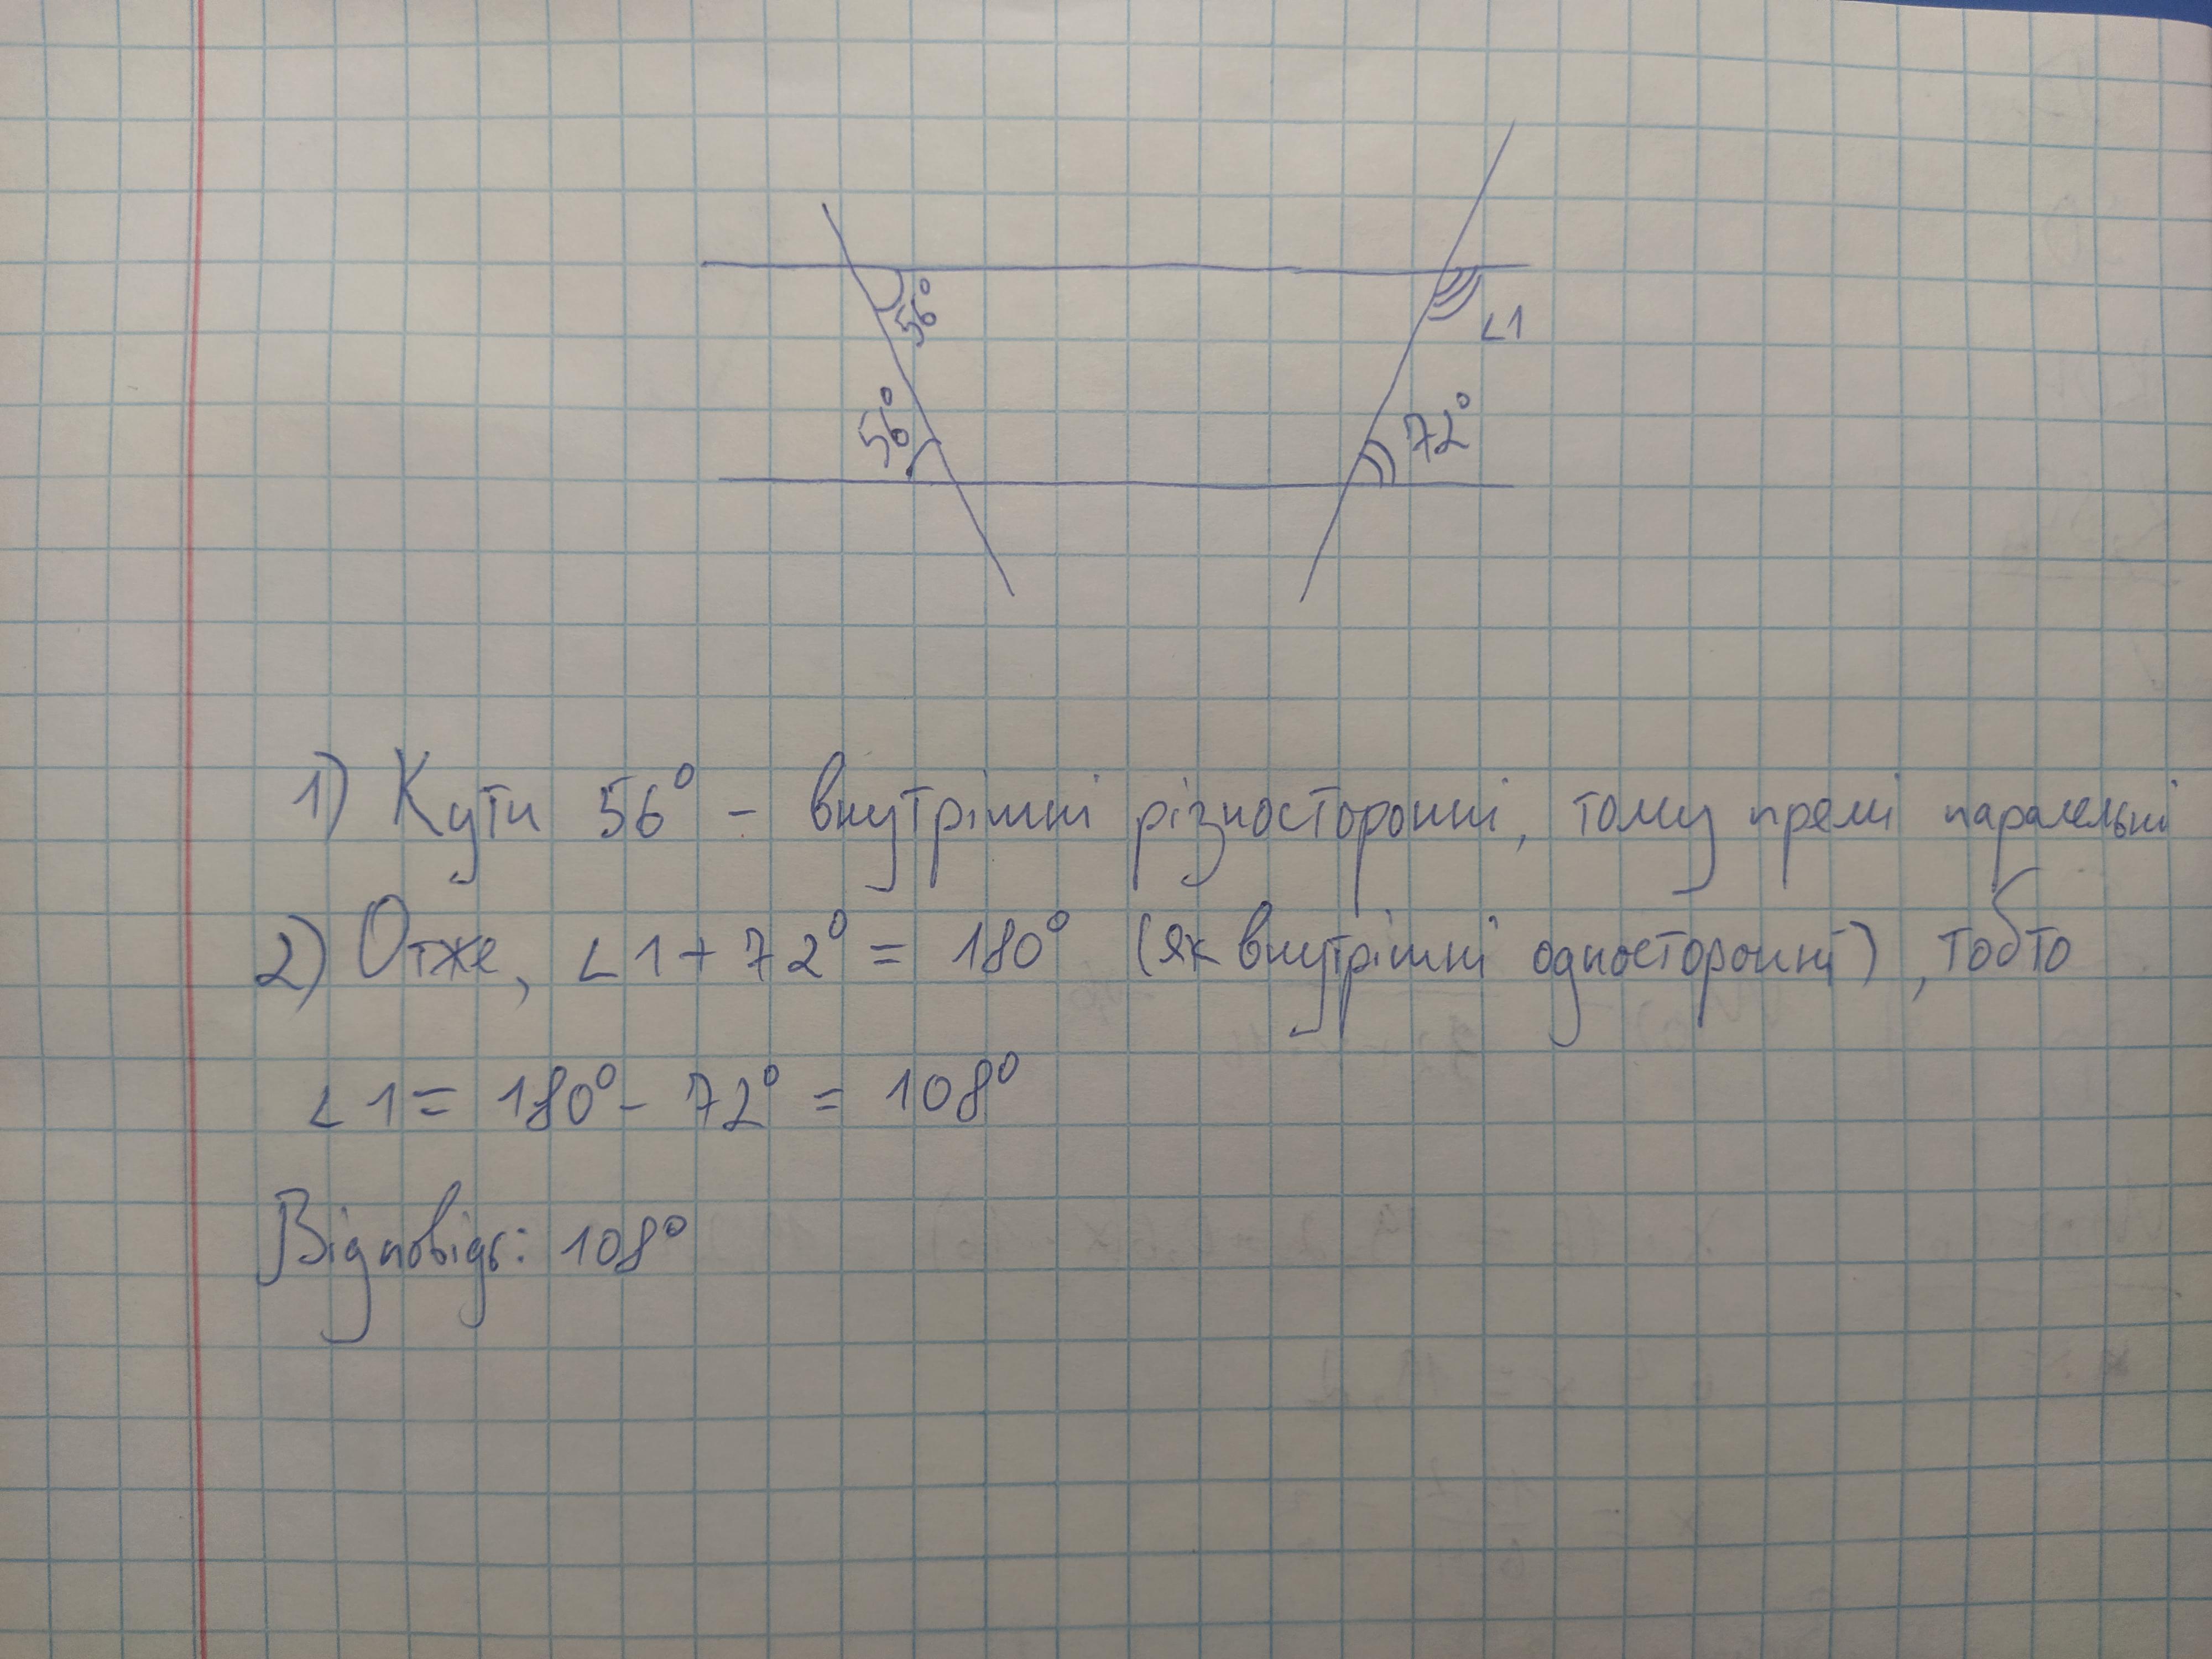 56°
∠1
56°
72°
1) Кути 56° - внутрішні різносторонні, тому прямі паралельні
2) Отже, ∠1 + 72° = 180° (як внутрішні односторонні), тобто
∠1 = 180° - 72° = 108°
Відповідь: 108°